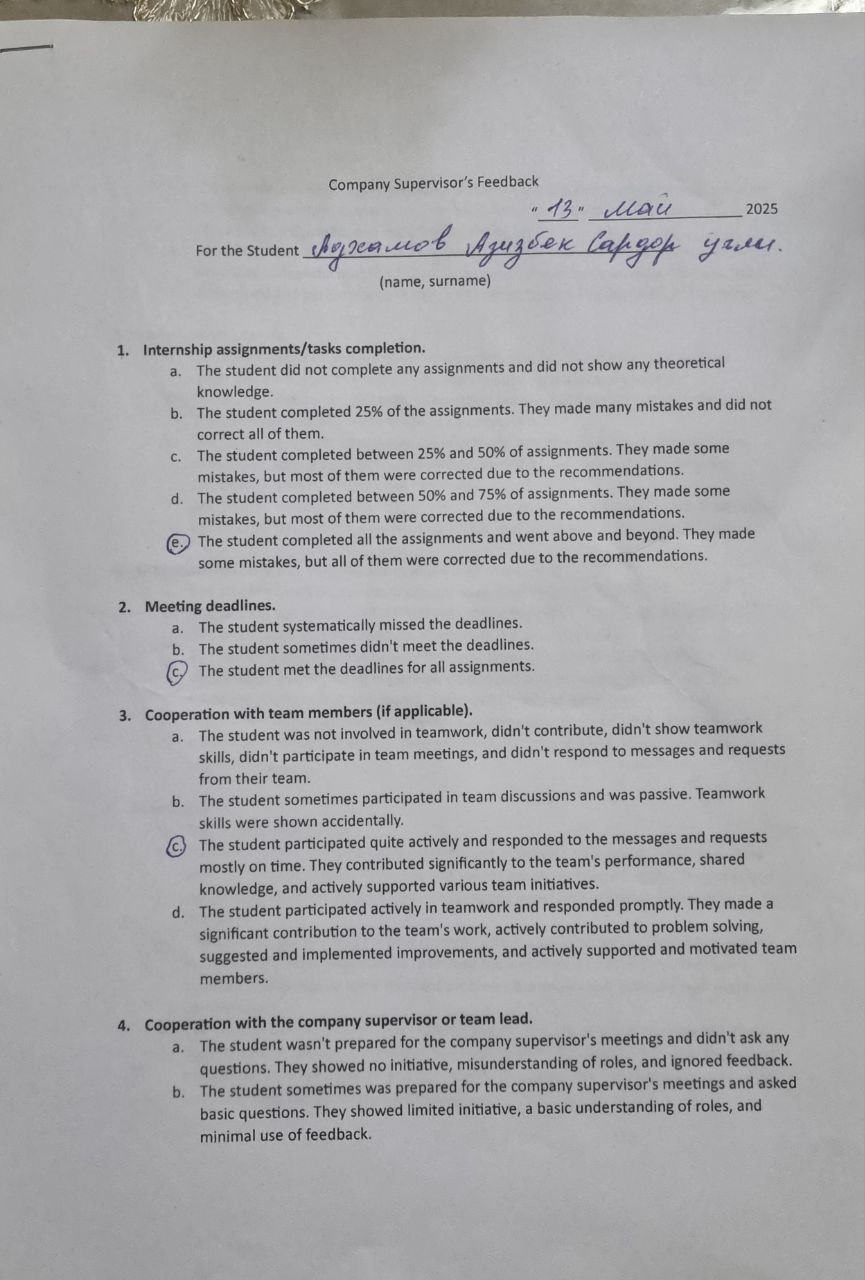 Company Supervisor's Feedback
"13" май 2025
For the Student Аджамов Азизбек Сардор угли.
(name, surname)
1. Internship assignments/tasks completion.
a. The student did not complete any assignments and did not show any theoretical
knowledge.
b. The student completed 25% of the assignments. They made many mistakes and did not
correct all of them.
c. The student completed between 25% and 50% of assignments. They made some
mistakes, but most of them were corrected due to the recommendations.
d. The student completed between 50% and 75% of assignments. They made some
mistakes, but most of them were corrected due to the recommendations.
e. The student completed all the assignments and went above and beyond. They made
some mistakes, but all of them were corrected due to the recommendations.
2. Meeting deadlines.
a. The student systematically missed the deadlines.
b. The student sometimes didn't meet the deadlines.
c. The student met the deadlines for all assignments.
3. Cooperation with team members (if applicable).
a. The student was not involved in teamwork, didn't contribute, didn't show teamwork
skills, didn't participate in team meetings, and didn't respond to messages and requests
from their team.
b. The student sometimes participated in team discussions and was passive. Teamwork
skills were shown accidentally.
c. The student participated quite actively and responded to the messages and requests
mostly on time. They contributed significantly to the team's performance, shared
knowledge, and actively supported various team initiatives.
d. The student participated actively in teamwork and responded promptly. They made a
significant contribution to the team's work, actively contributed to problem solving,
suggested and implemented improvements, and actively supported and motivated team
members.
4. Cooperation with the company supervisor or team lead.
a. The student wasn't prepared for the company supervisor's meetings and didn't ask any
questions. They showed no initiative, misunderstanding of roles, and ignored feedback.
b. The student sometimes was prepared for the company supervisor's meetings and asked
basic questions. They showed limited initiative, a basic understanding of roles, and
minimal use of feedback.